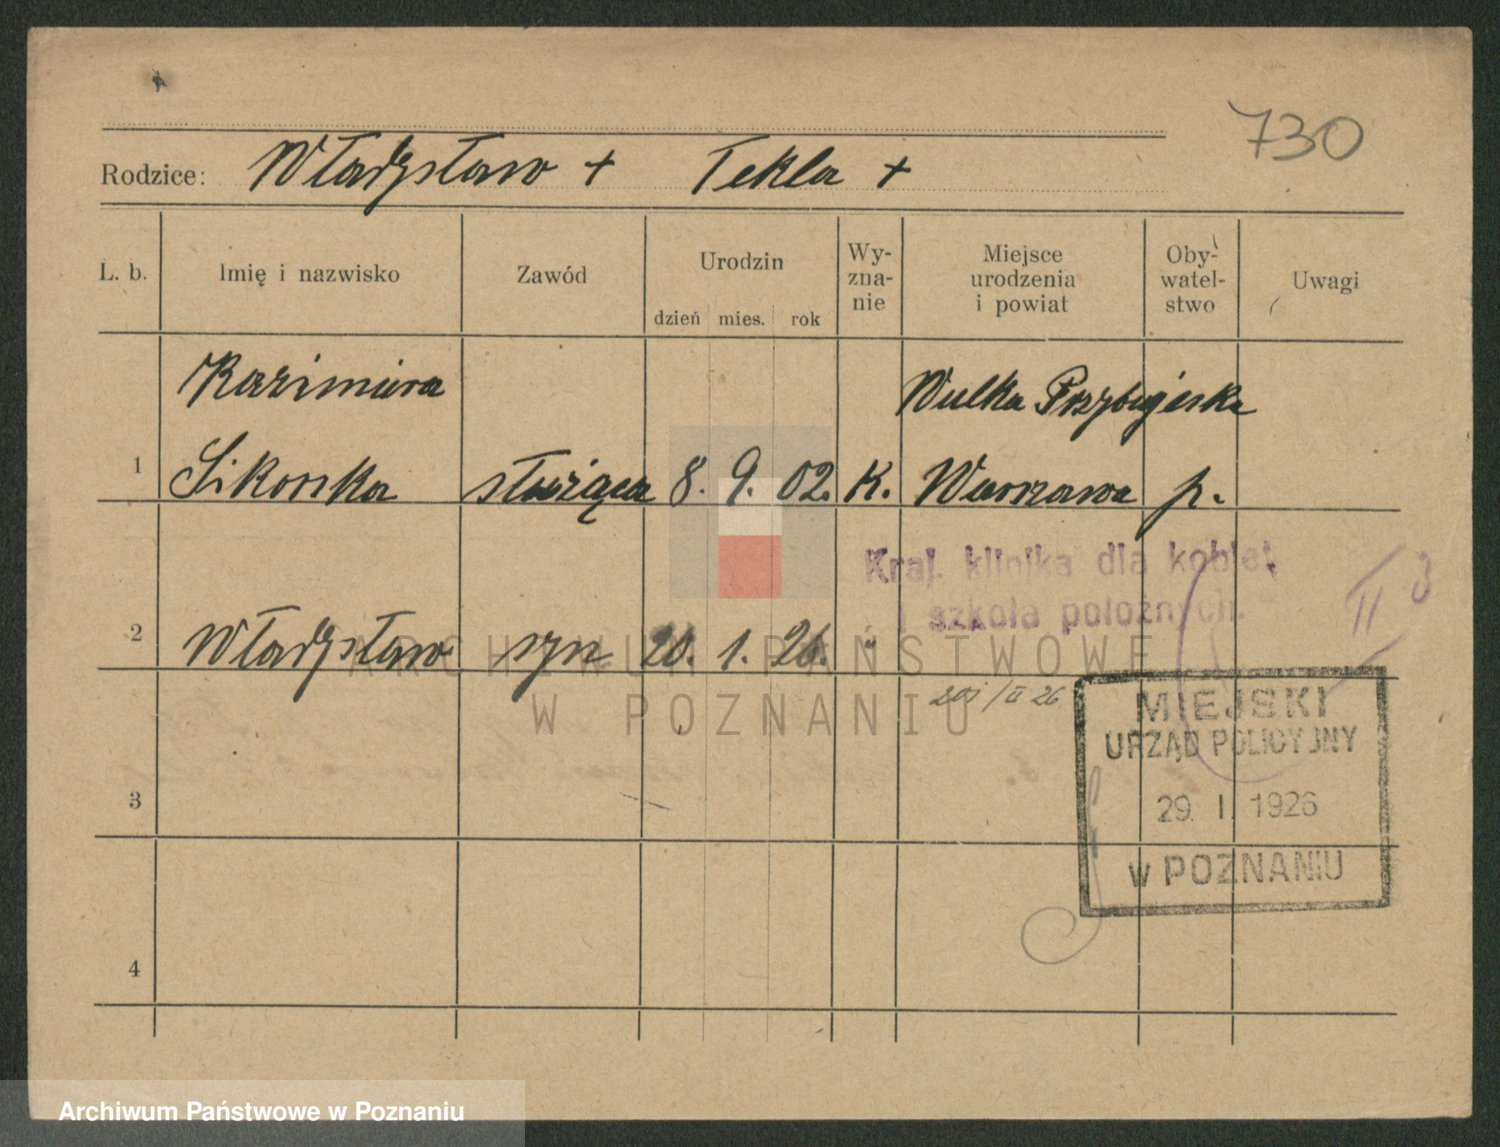 730
Rodzice: Władysław + Tekla +
L. b. Imię i nazwisko Zawód Urodzin dzień mies. rok Wy-zna-nie Miejsce urodzenia i powiat Oby-watel-stwo Uwagi
Kazimiera Wulka Przybojeska
1 Sikorska służąca 8. 9. 02. K. Warszawa p.
Kraj. klinika dla kobiet
i szkoła położnych.
II 3
2 Władysław syn 20. 1. 26. "
ARCHIWUM PAŃSTWOWE
W POZNANIU
/II 26
MIEJSKI
URZĄD POLICYJNY
29. I. 1926
w POZNANIU
3
4
Archiwum Państwowe w Poznaniu